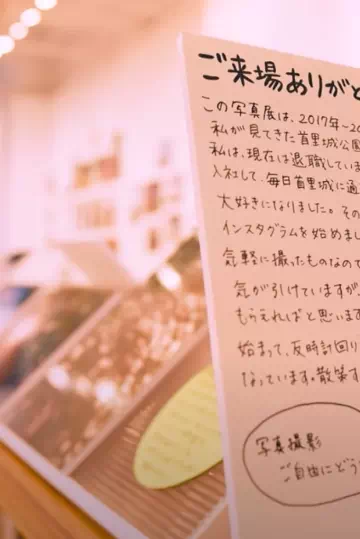 ご来場ありがと
この写真展は、2017年~20
私が見てきた首里城公園
私は、現在は退職していま
入社して、毎日首里城に通
大好きになりました。その
インスタグラムを始めまし
気軽に撮ったものなので
気が引けていますが、
もらえればと思います
始まって、反時計回り
なっています。散策す
写真撮影
ご自由にどう